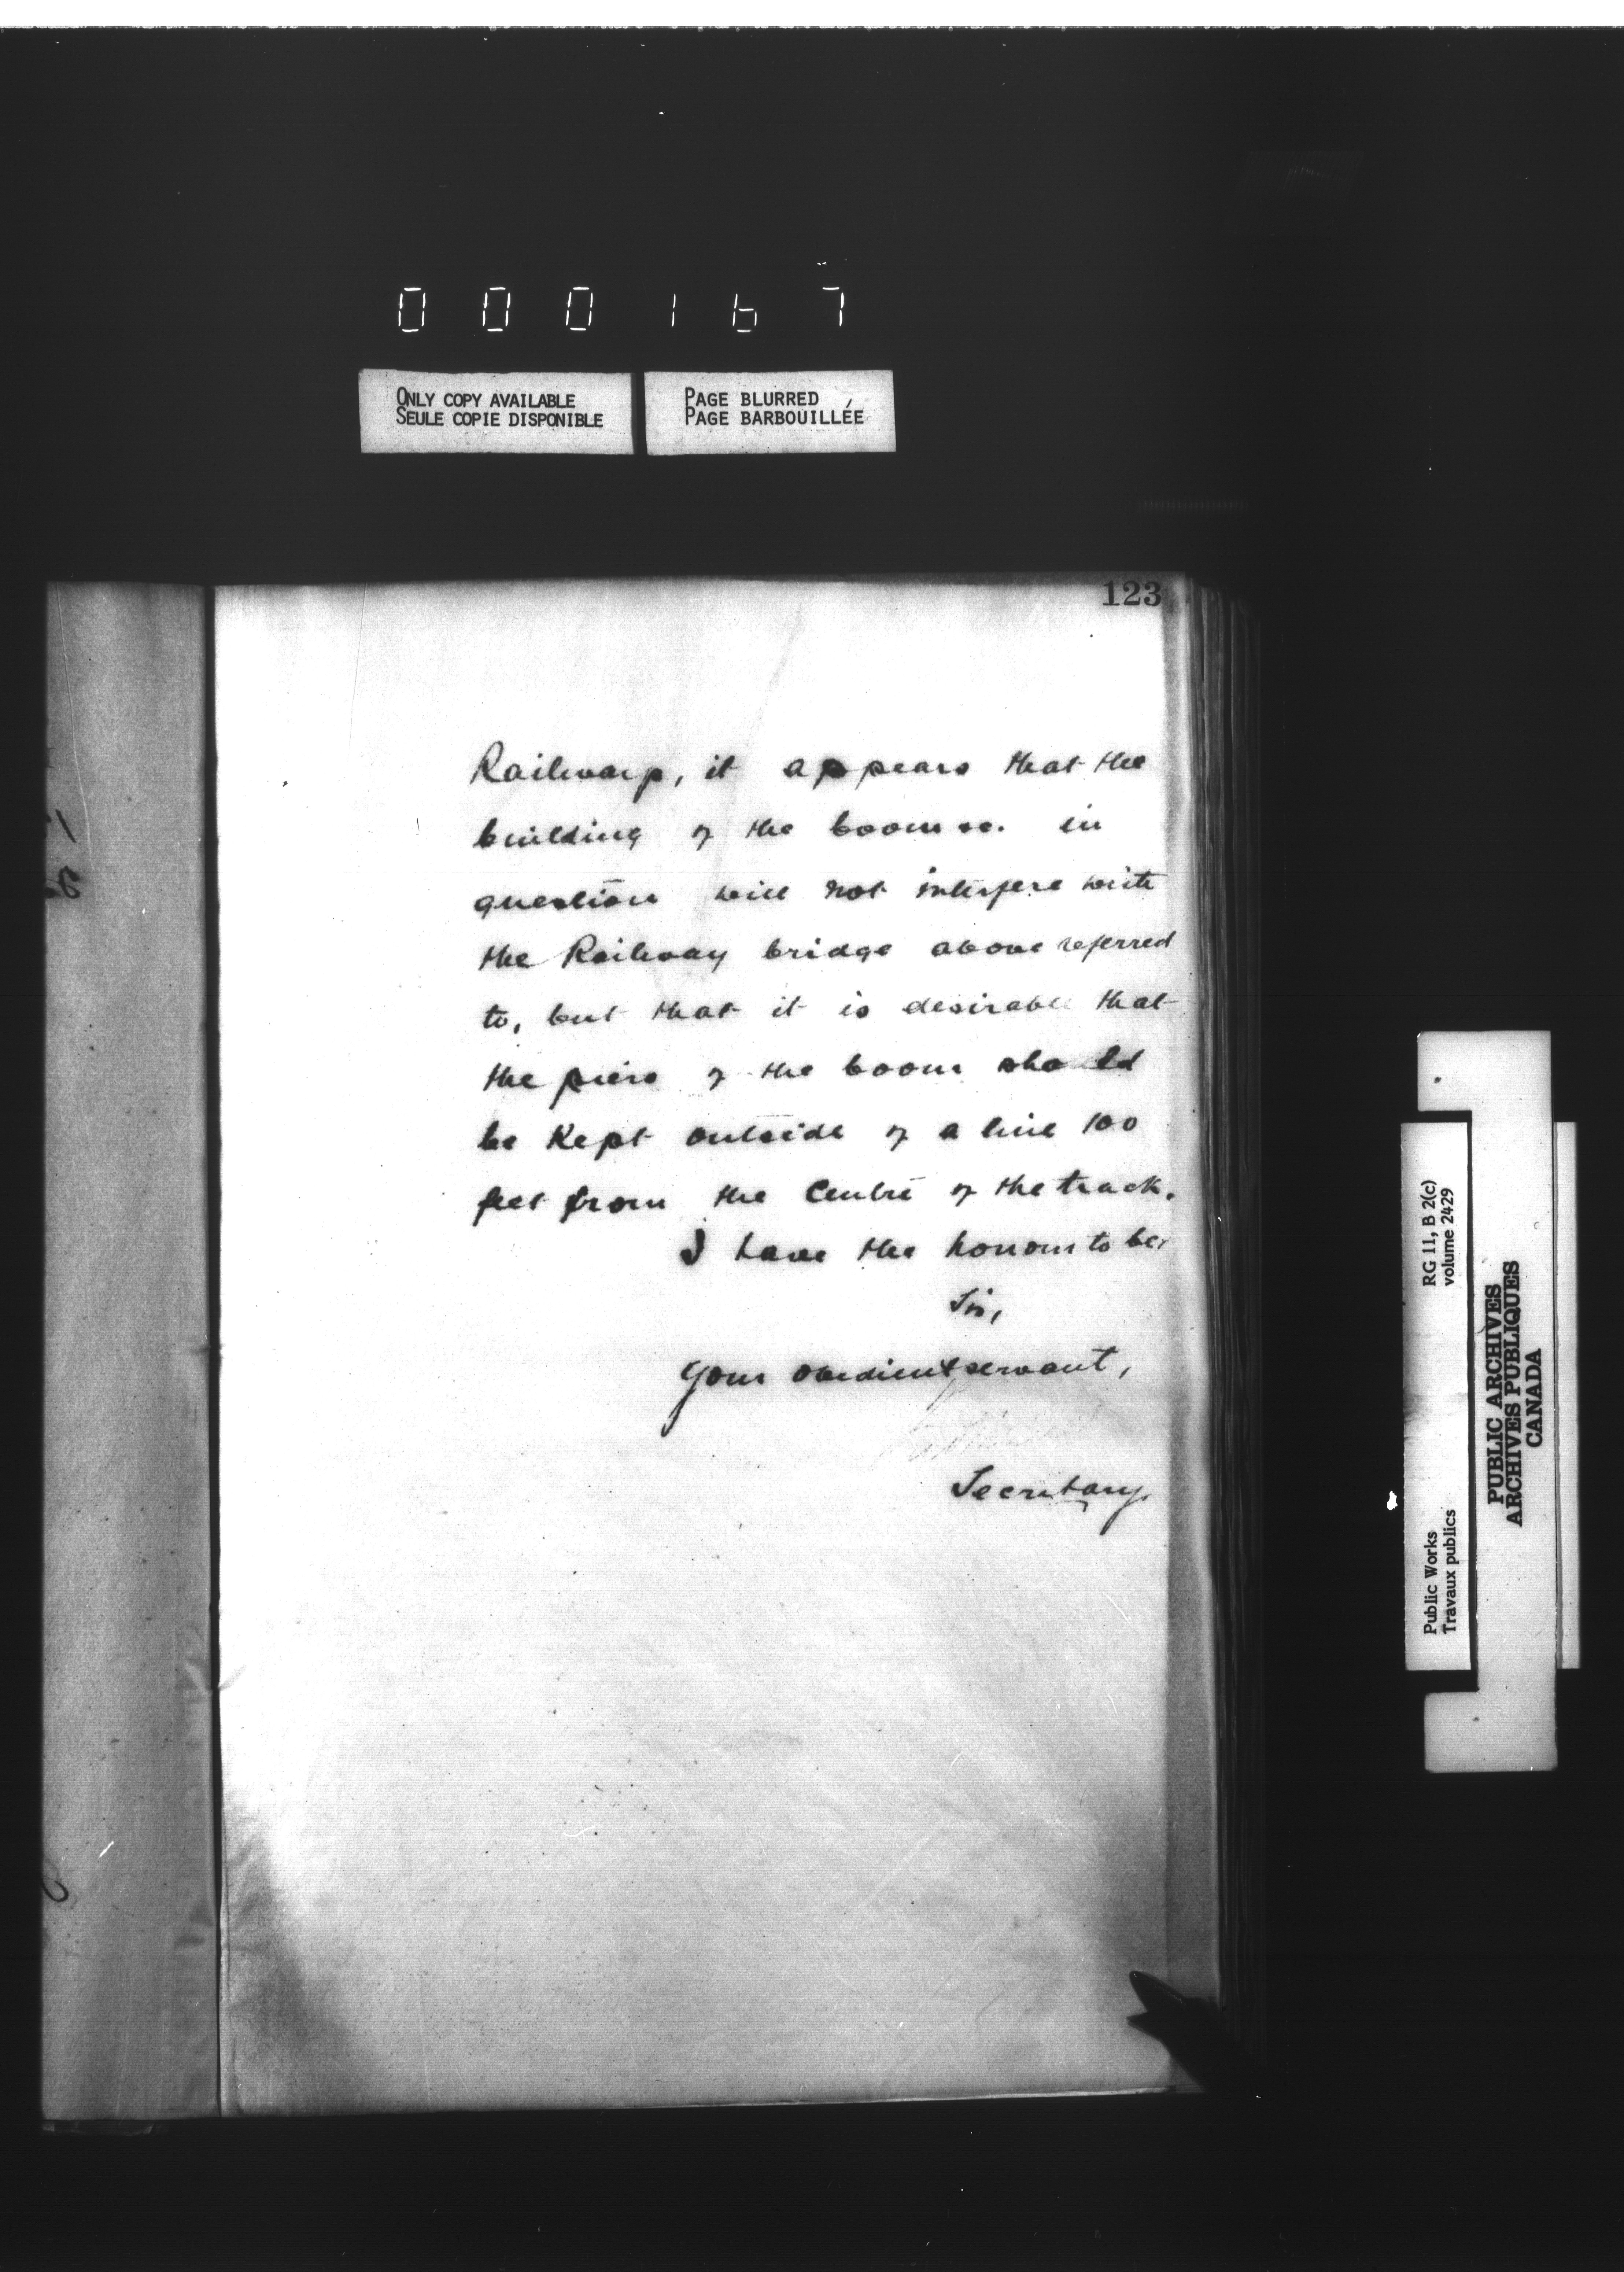 000167
ONLY COPY AVAILABLE
SEULE COPIE DISPONIBLE
PAGE BLURRED
PAGE BARBOUILLÉE
123
Railways, it appears that the
building of the boom &c. in
question will not interfere with
the Railway bridge above referred
to, but that it is desirable that
the piers of the boom should
be Kept outside of a line 100
feet from the Centre of the track.
I have the honour to be,
Sir,
Your obedient servant,
Secretary.
Public Works
Travaux publics
RG 11, B 2(c)
volume 2429
PUBLIC ARCHIVES
ARCHIVES PUBLIQUES
CANADA